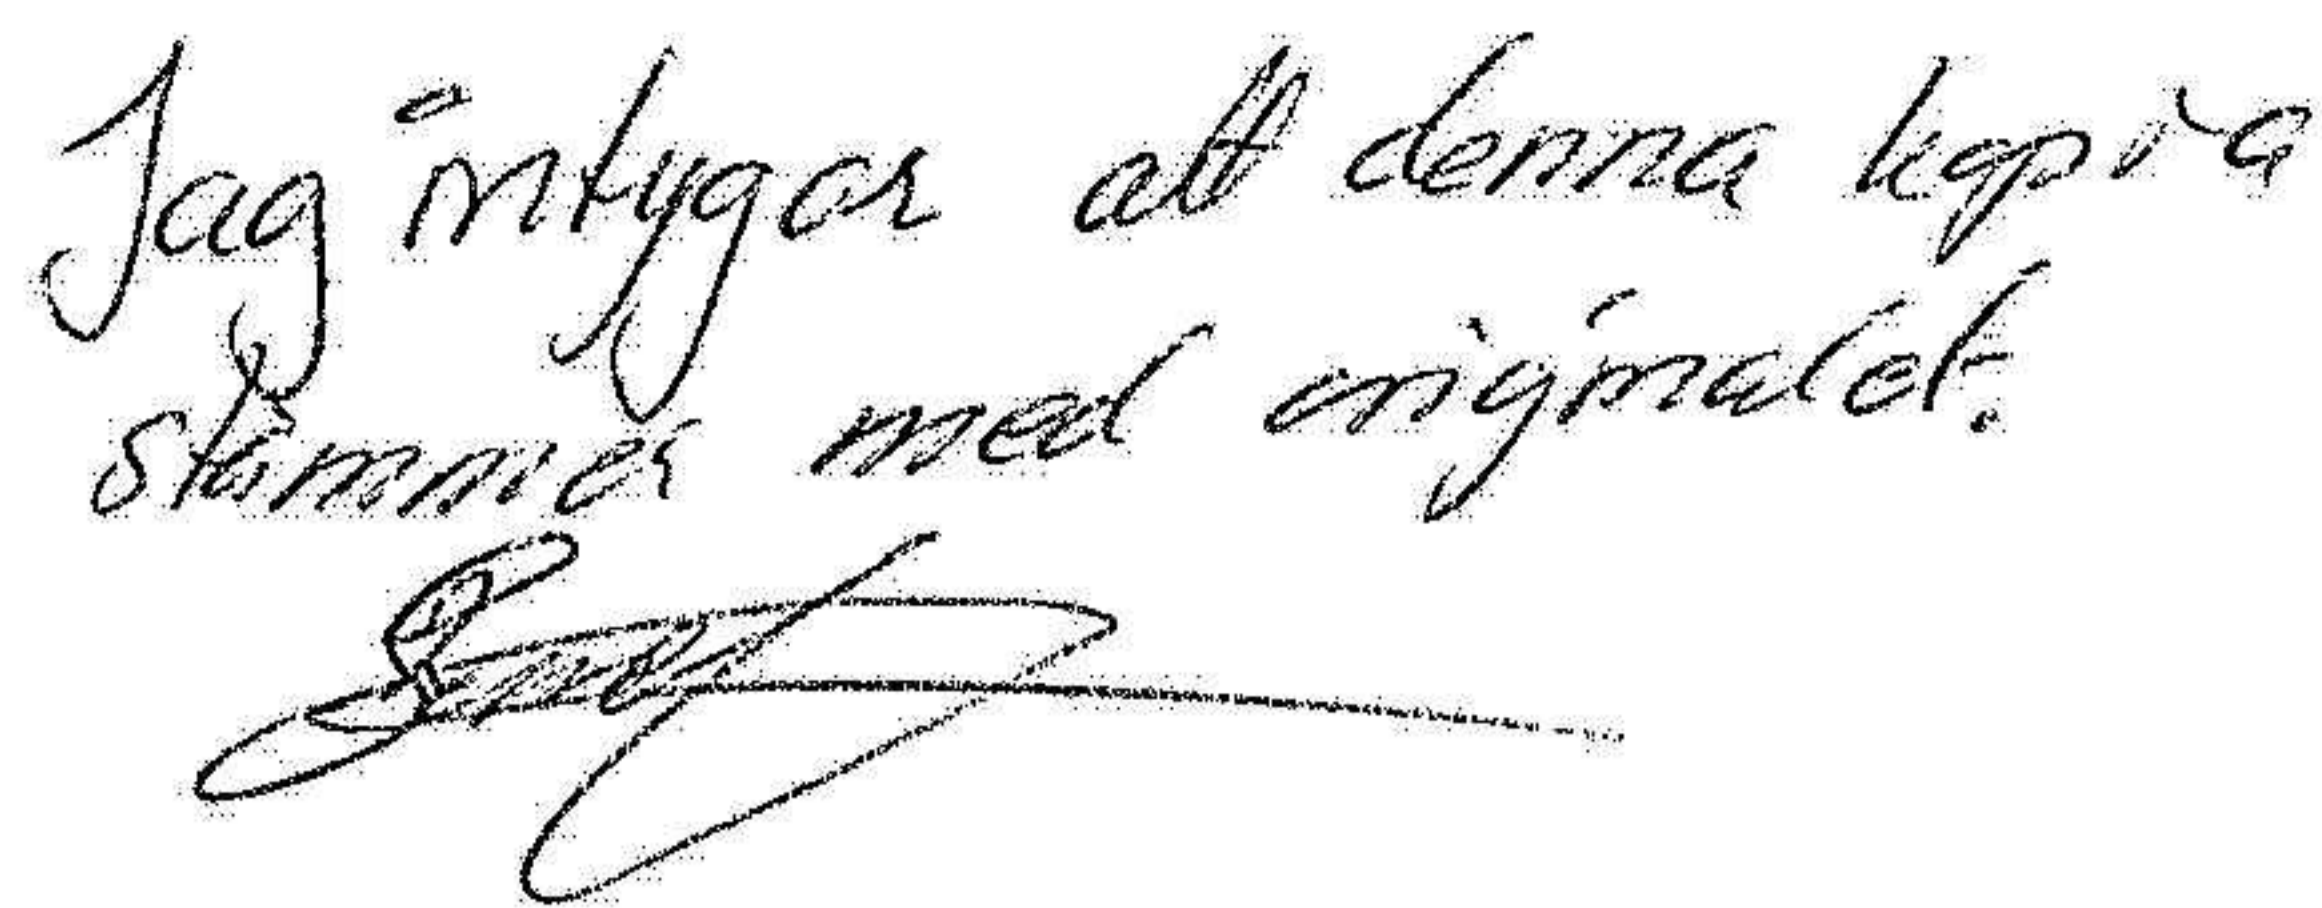 Jag intygar att denna kopia
stämmer med originalet.